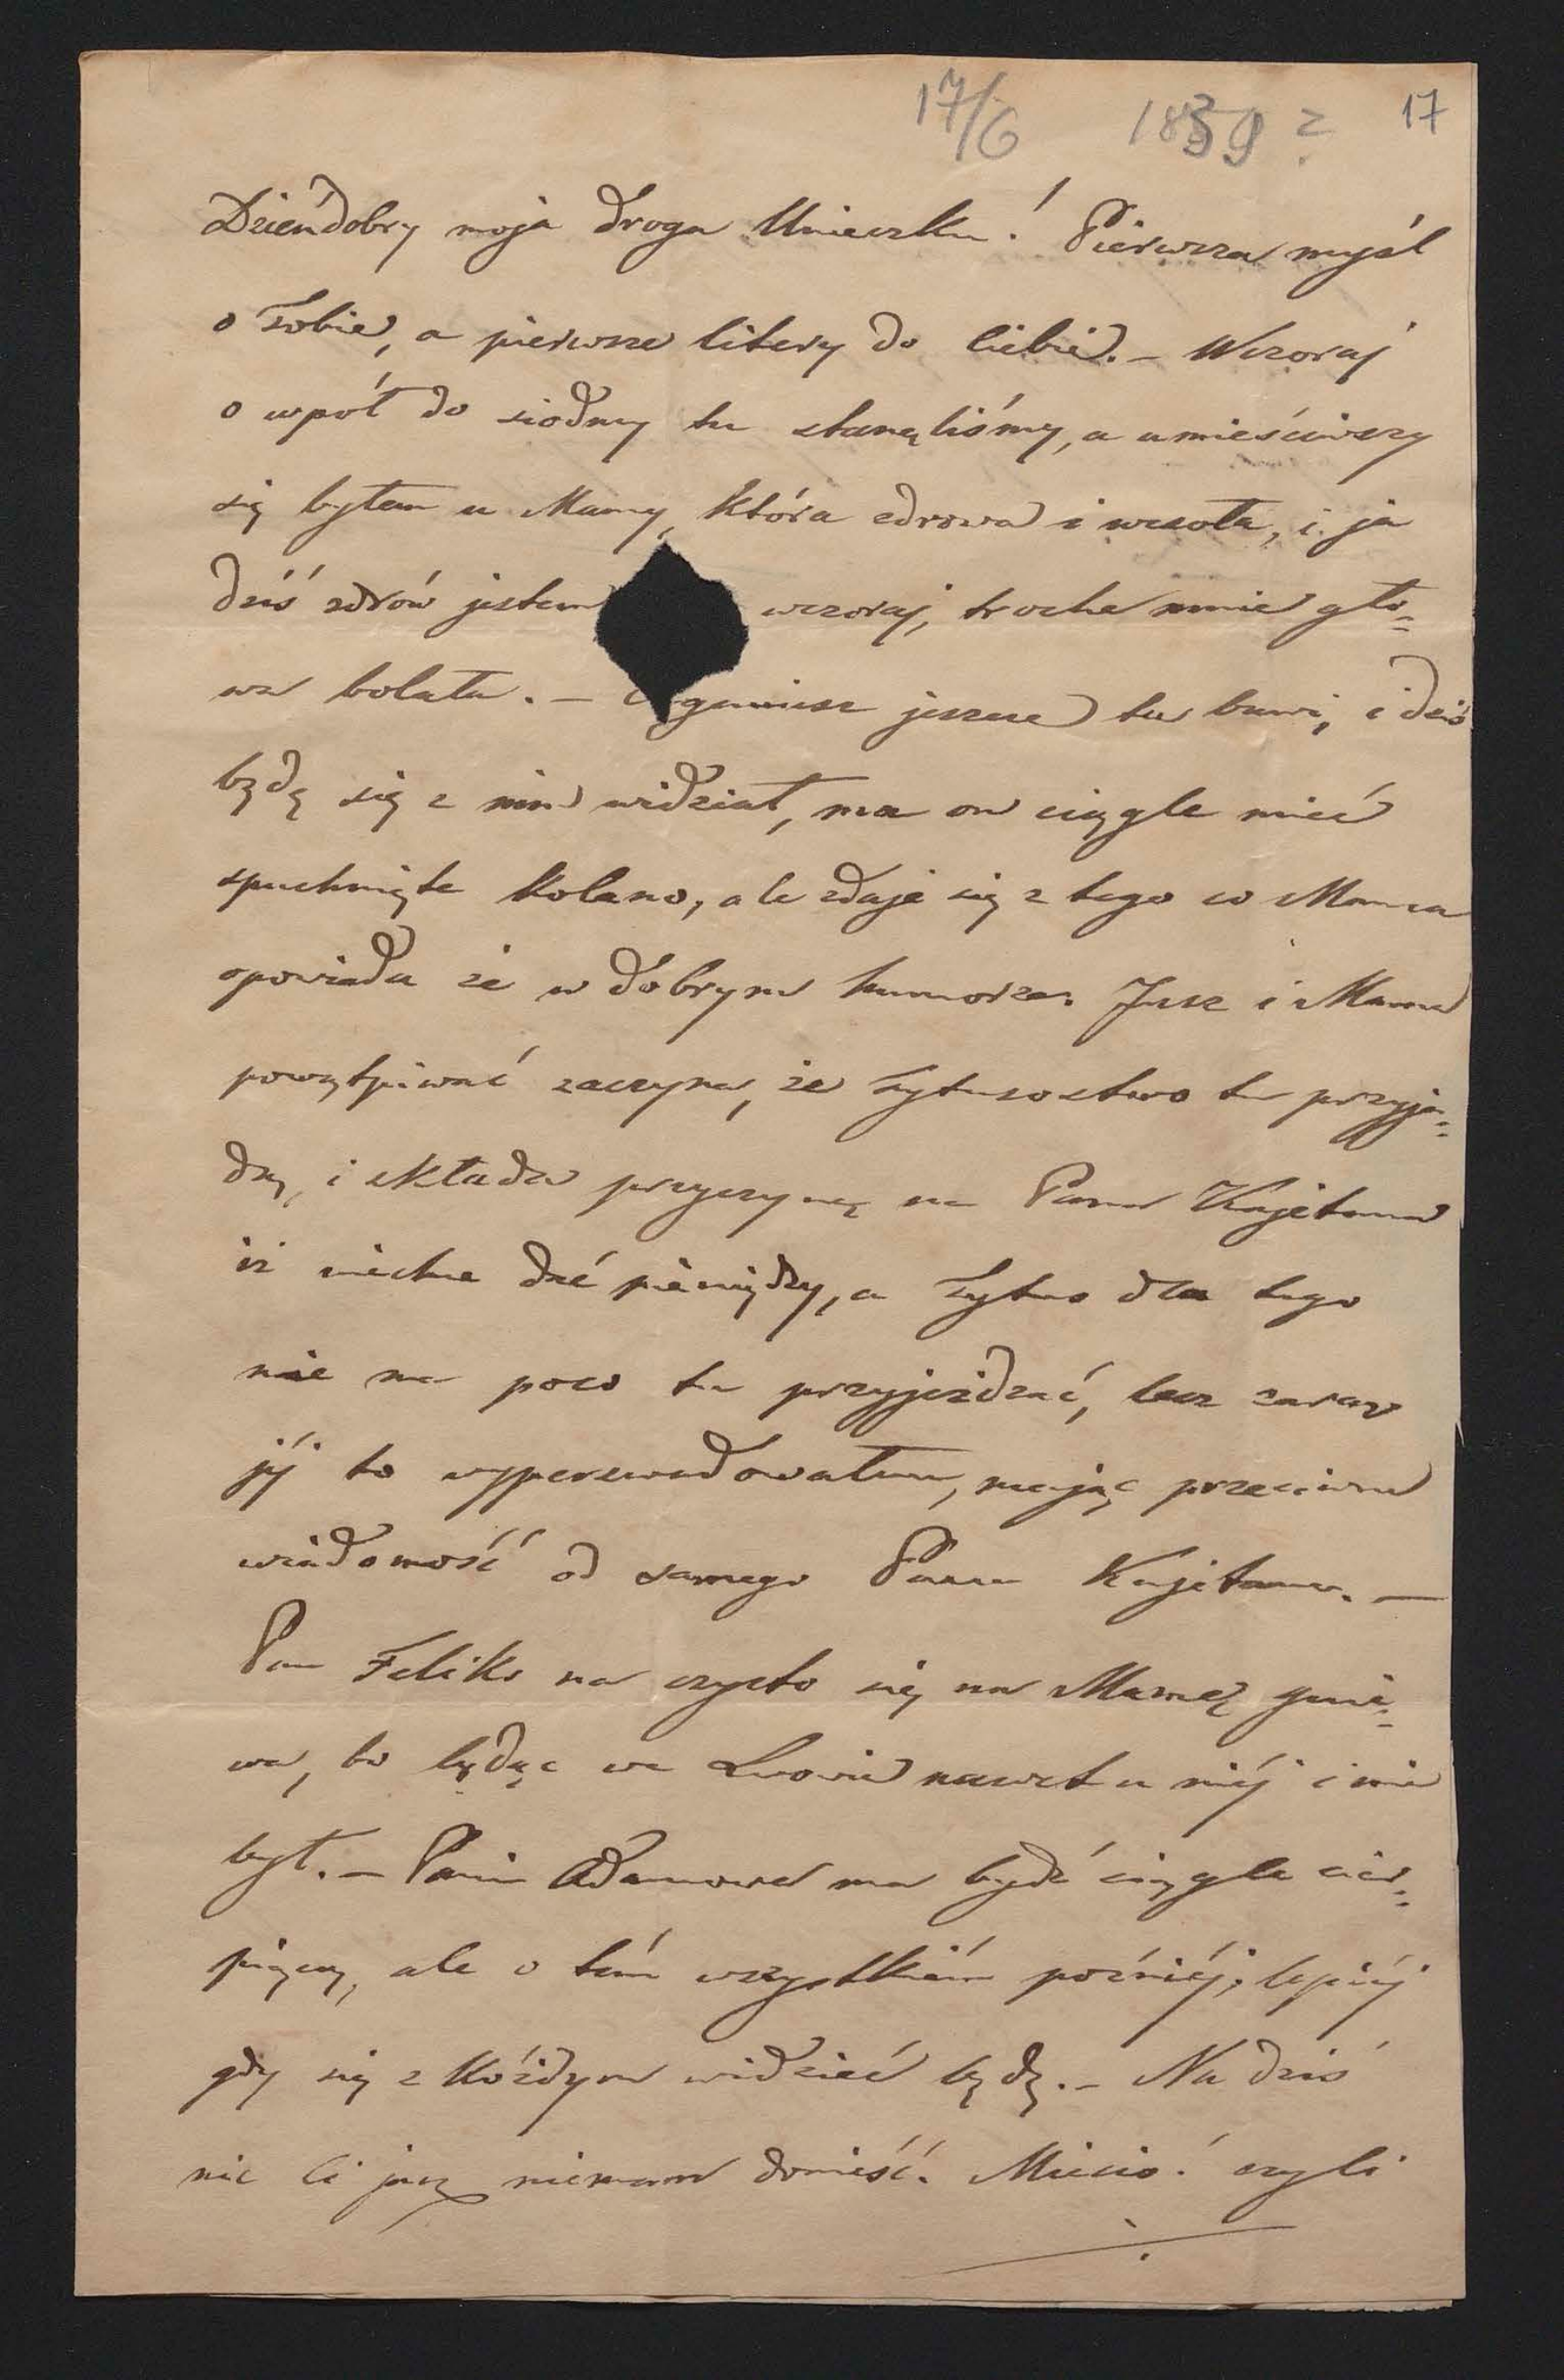 17/6 1859? 17
Dzieńdobry moja droga Unieczku! Pierwsza myśl
o Tobie, a pierwsze litery do Ciebie. – Wczoraj
o wpół do siodmy tu stanęliśmy, a umieściwszy
się byłem u Mamy, która zdrowa i wesoła, i ja
dziś zdrów jestem wczoraj, troche mnie gło=
wa bolała. – jeszcze tu bawi, i dziś
będę się z nim widział, ma on ciągle mieć
spuchnięte kolano, ale zdaje się z tego co Mama
opowiada że w dobrym humorze. Jusz i Mama
powątpiwać zaczyna, że Tytusostwo tu przyja=
dą, i składa przyczynę na Pana Kajetana
iż niechce dać pieniędzy, a Tytus dla tego
nie ma poco tu przyjeżdzać, lecz zaraz
jéj to wyperswadowałem, mając przeciwną
wiadomość od samego Pana Kajetana. —
Pan Feliks na czysto się na Mamę gnie=
wa, bo będąc we Lwowie nawet u niéj i nie
był. – Pani Adamowa ma bydź ciągle cier=
piącą, ale o tém wszystkiém poźniéj, lepiéj
gdy się z każdym widzieć będę. – Na dziś
nic Ci jusz niemam donieść. Miecio! czyli